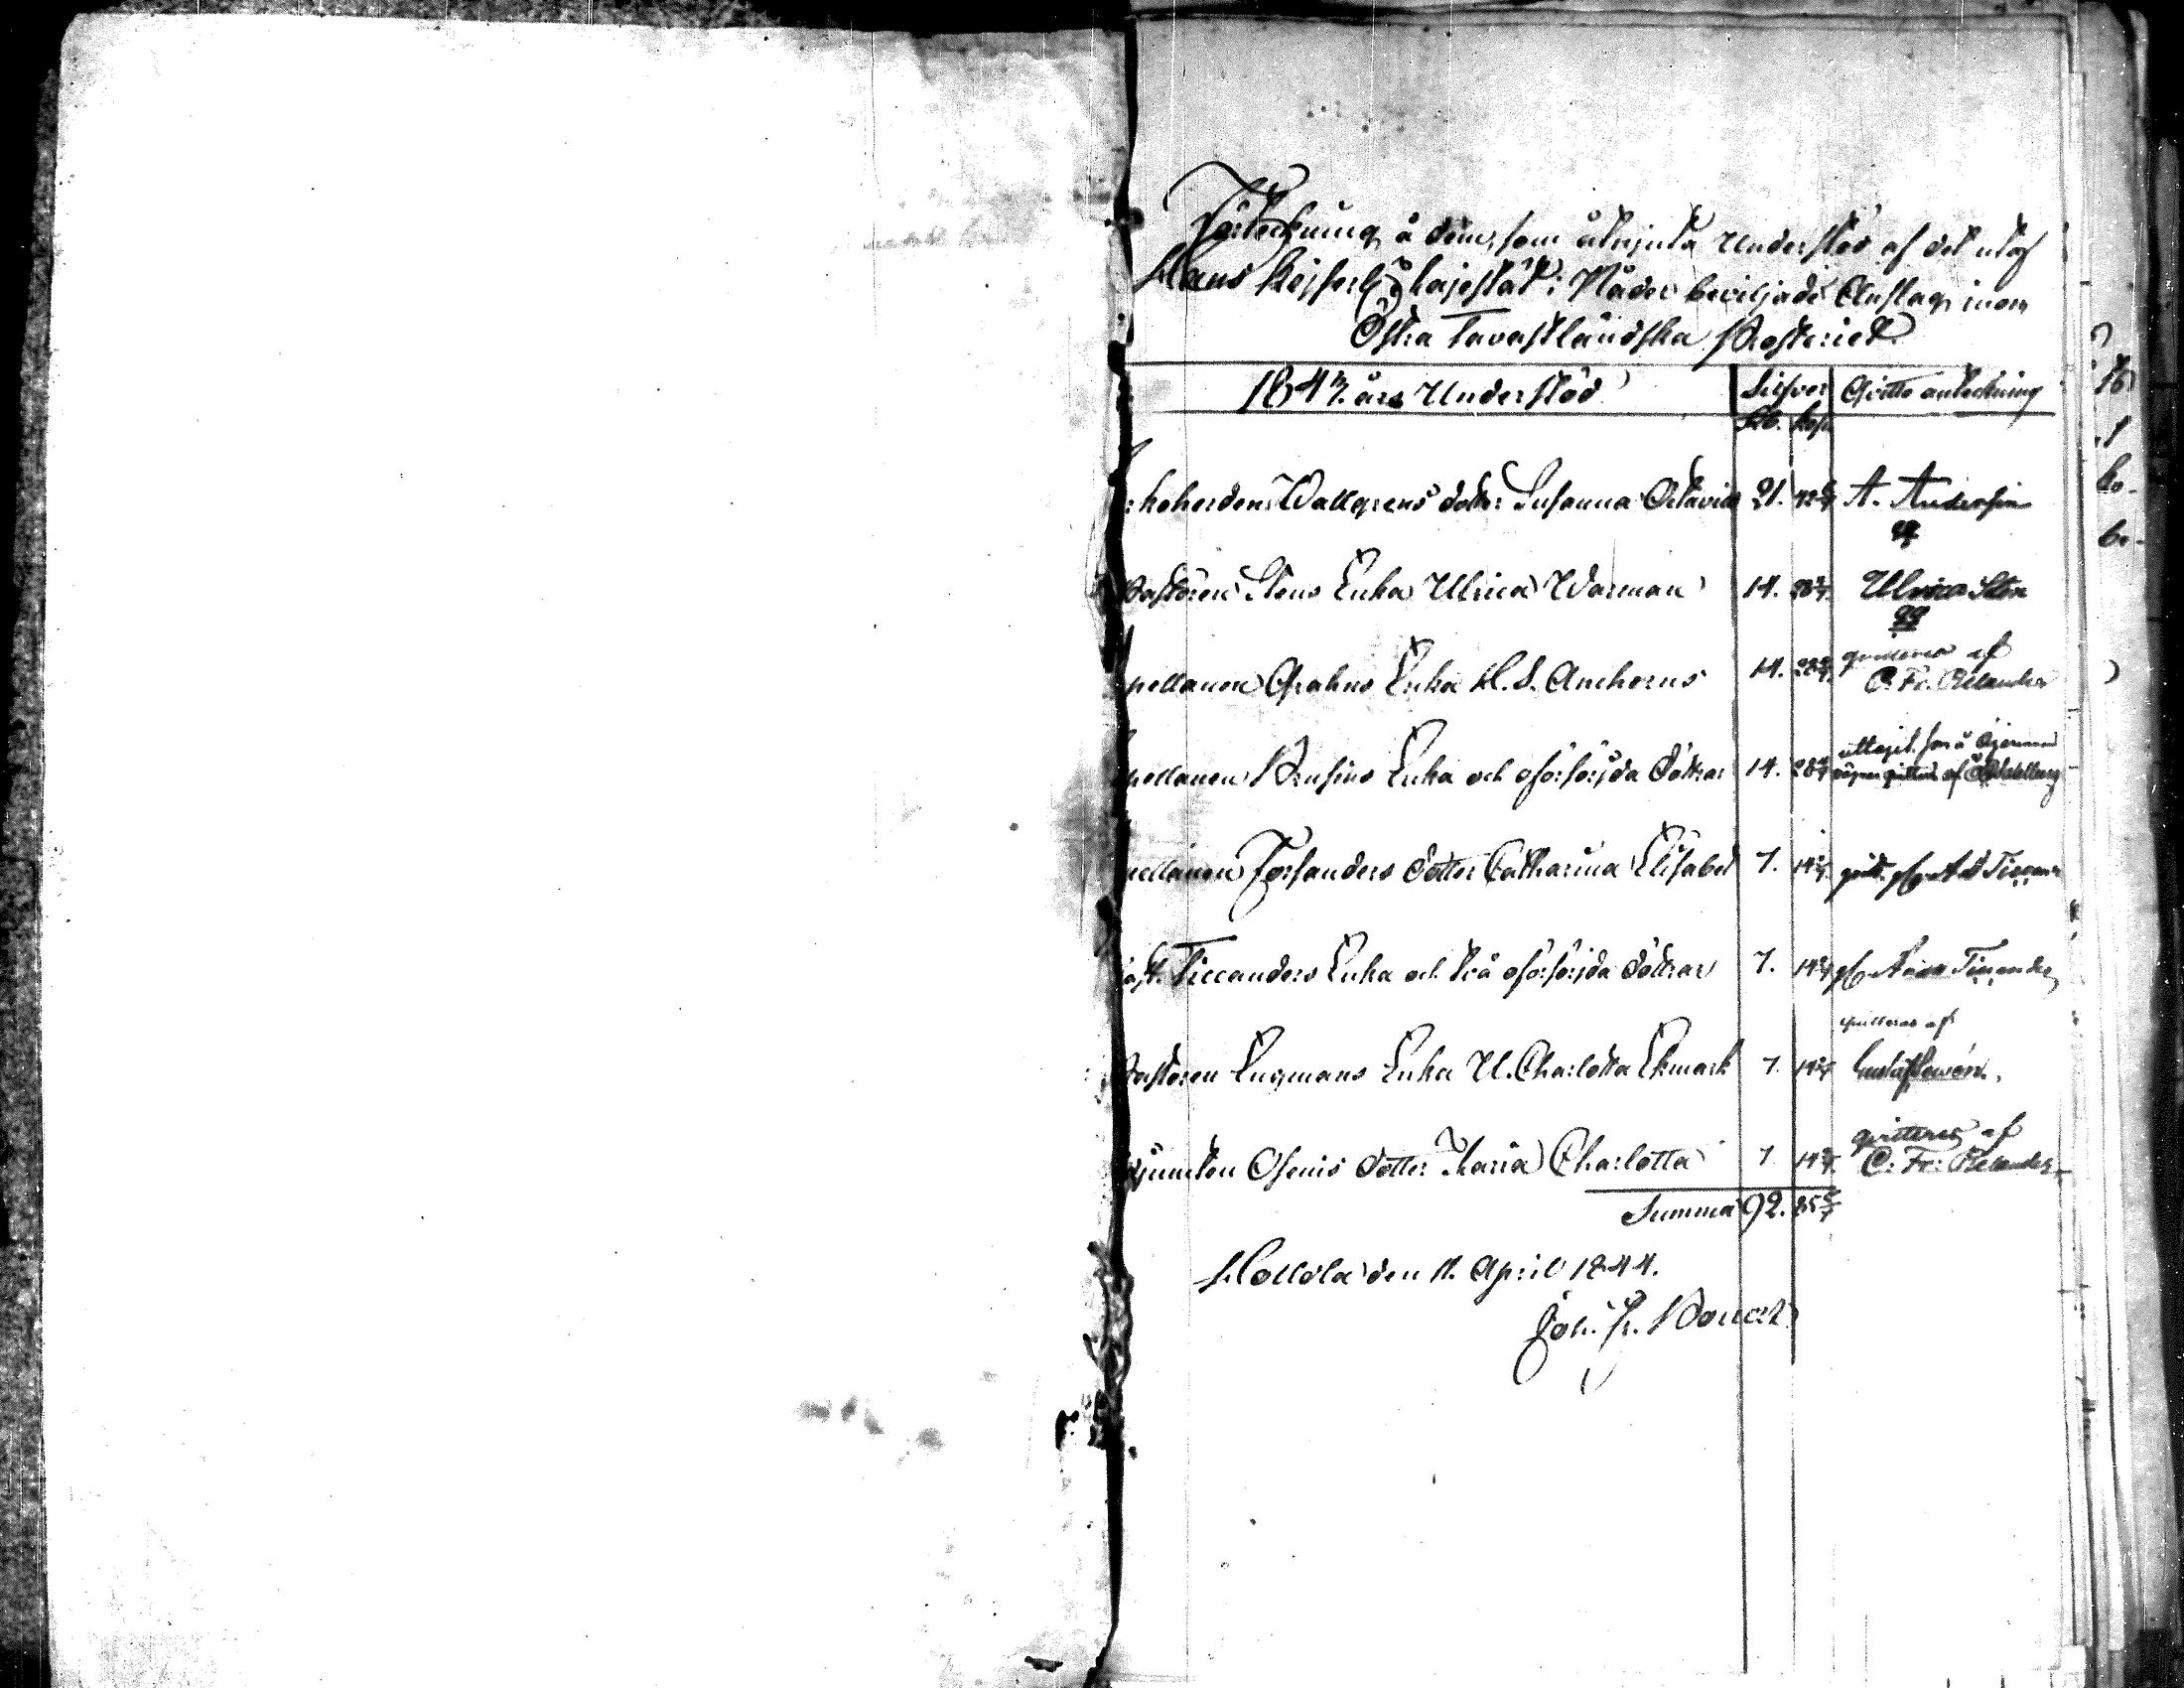 Förteckning å dem, som åtnjuta Understöd af det utaf
Hans Kejserl. Majestät i Nåder beviljade Anslag inom
Östra Tavastländska Prosteriet
1843 års Understöd Silfver Qvitto anteckning
Rb. Kop.
koherden Wallgrens dotter Susanna Octavia 21. 42 6/7 A. Andersin
Pastoren Stens Enka Ulrica Warman 14. 28 4/7 Ulrica Sten
pellanen Grahns Enka H. S. Anchorus 14. 28 4/7 qvitteras af
C. Fr. Relander
pellanen Krusius Enka och oförsörjda döttrar 14. 28 4/7
pellanen Forsanders dotter Catharina Elisabet 7. 14 2/7 qvitt.
Past. Ticcanders Enka och två oförsörjda döttrar 7. 14 2/7 Ticcander
qvitteras af
Pastoren Lugmans Enka U. Charlotta Ekmark 7. 14 2/7 Gustaf Lewén.
djuncten Osenis dotter Maria Charlotta 7 14 2/7 qvitteras af
C. Fr. Relander
Summa 92. 85 5/7
Hollola den 11. April 1844.
Joh. Fr.